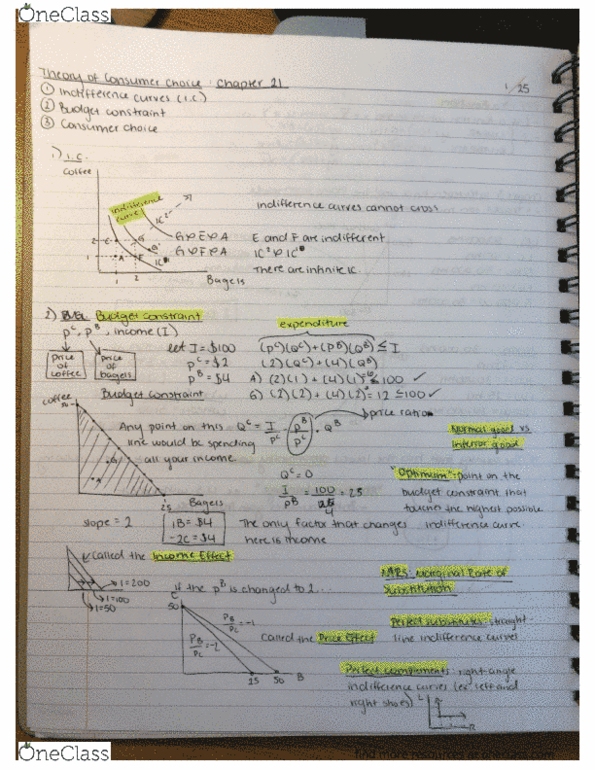 OneClass
Theory of Consumer Choice : Chapter 21
1 25
① Indifference curves (I.C)
② Budget constraint
③ Consumer choice
1) I.C.
Coffee
indifference curve
IC²
Indifference curves cannot cross
E and F are indifferent
IC² P IC¹
There are infinite IC.
2 C G
1 A F
1 2 Bagels
2) Budget constraint
P^C, P^B, income (I)
price of coffee
price of bagels
let I = $100
P^C = $2
P^B = $4
expenditure
(P^C)(Q^C) + (P^B)(Q^B) ≤ I
(2)(Q^C) + (4)(Q^B)
A) (2)(1) + (4)(1) = 6 ≤ 100 ✓
G) (2)(2) + (4)(2) = 12 ≤ 100 ✓
Budget Constraint
Coffee
50
Any point on this
line would be spending
all your income.
Q^C = I/P^C - P^B/P^C · Q^B
price ratio
Normal good vs
Inferior good
Q^C = 0
I/P^B = 100/4 = 25
"Optimum": point on the
budget constraint that
touches the highest possible
indifference curve
25 Bagels
slope = 2
1B = $4
-2C = $4
The only factor that changes
here is income
called the Income Effect
I=200
I=100
I=50
MRS: Marginal Rate of
Substitution
If the P^B is changed to 2...
C
50
P_B/P_C = -1
P_B/P_C = -2
25 50 B
Called the Price Effect
Perfect substitutes: straight-
line indifference curve
Perfect complements: right-angle
indifference curves (ex. left and
right shoes)
L
R
OneClass
find more resources at oneclass.com